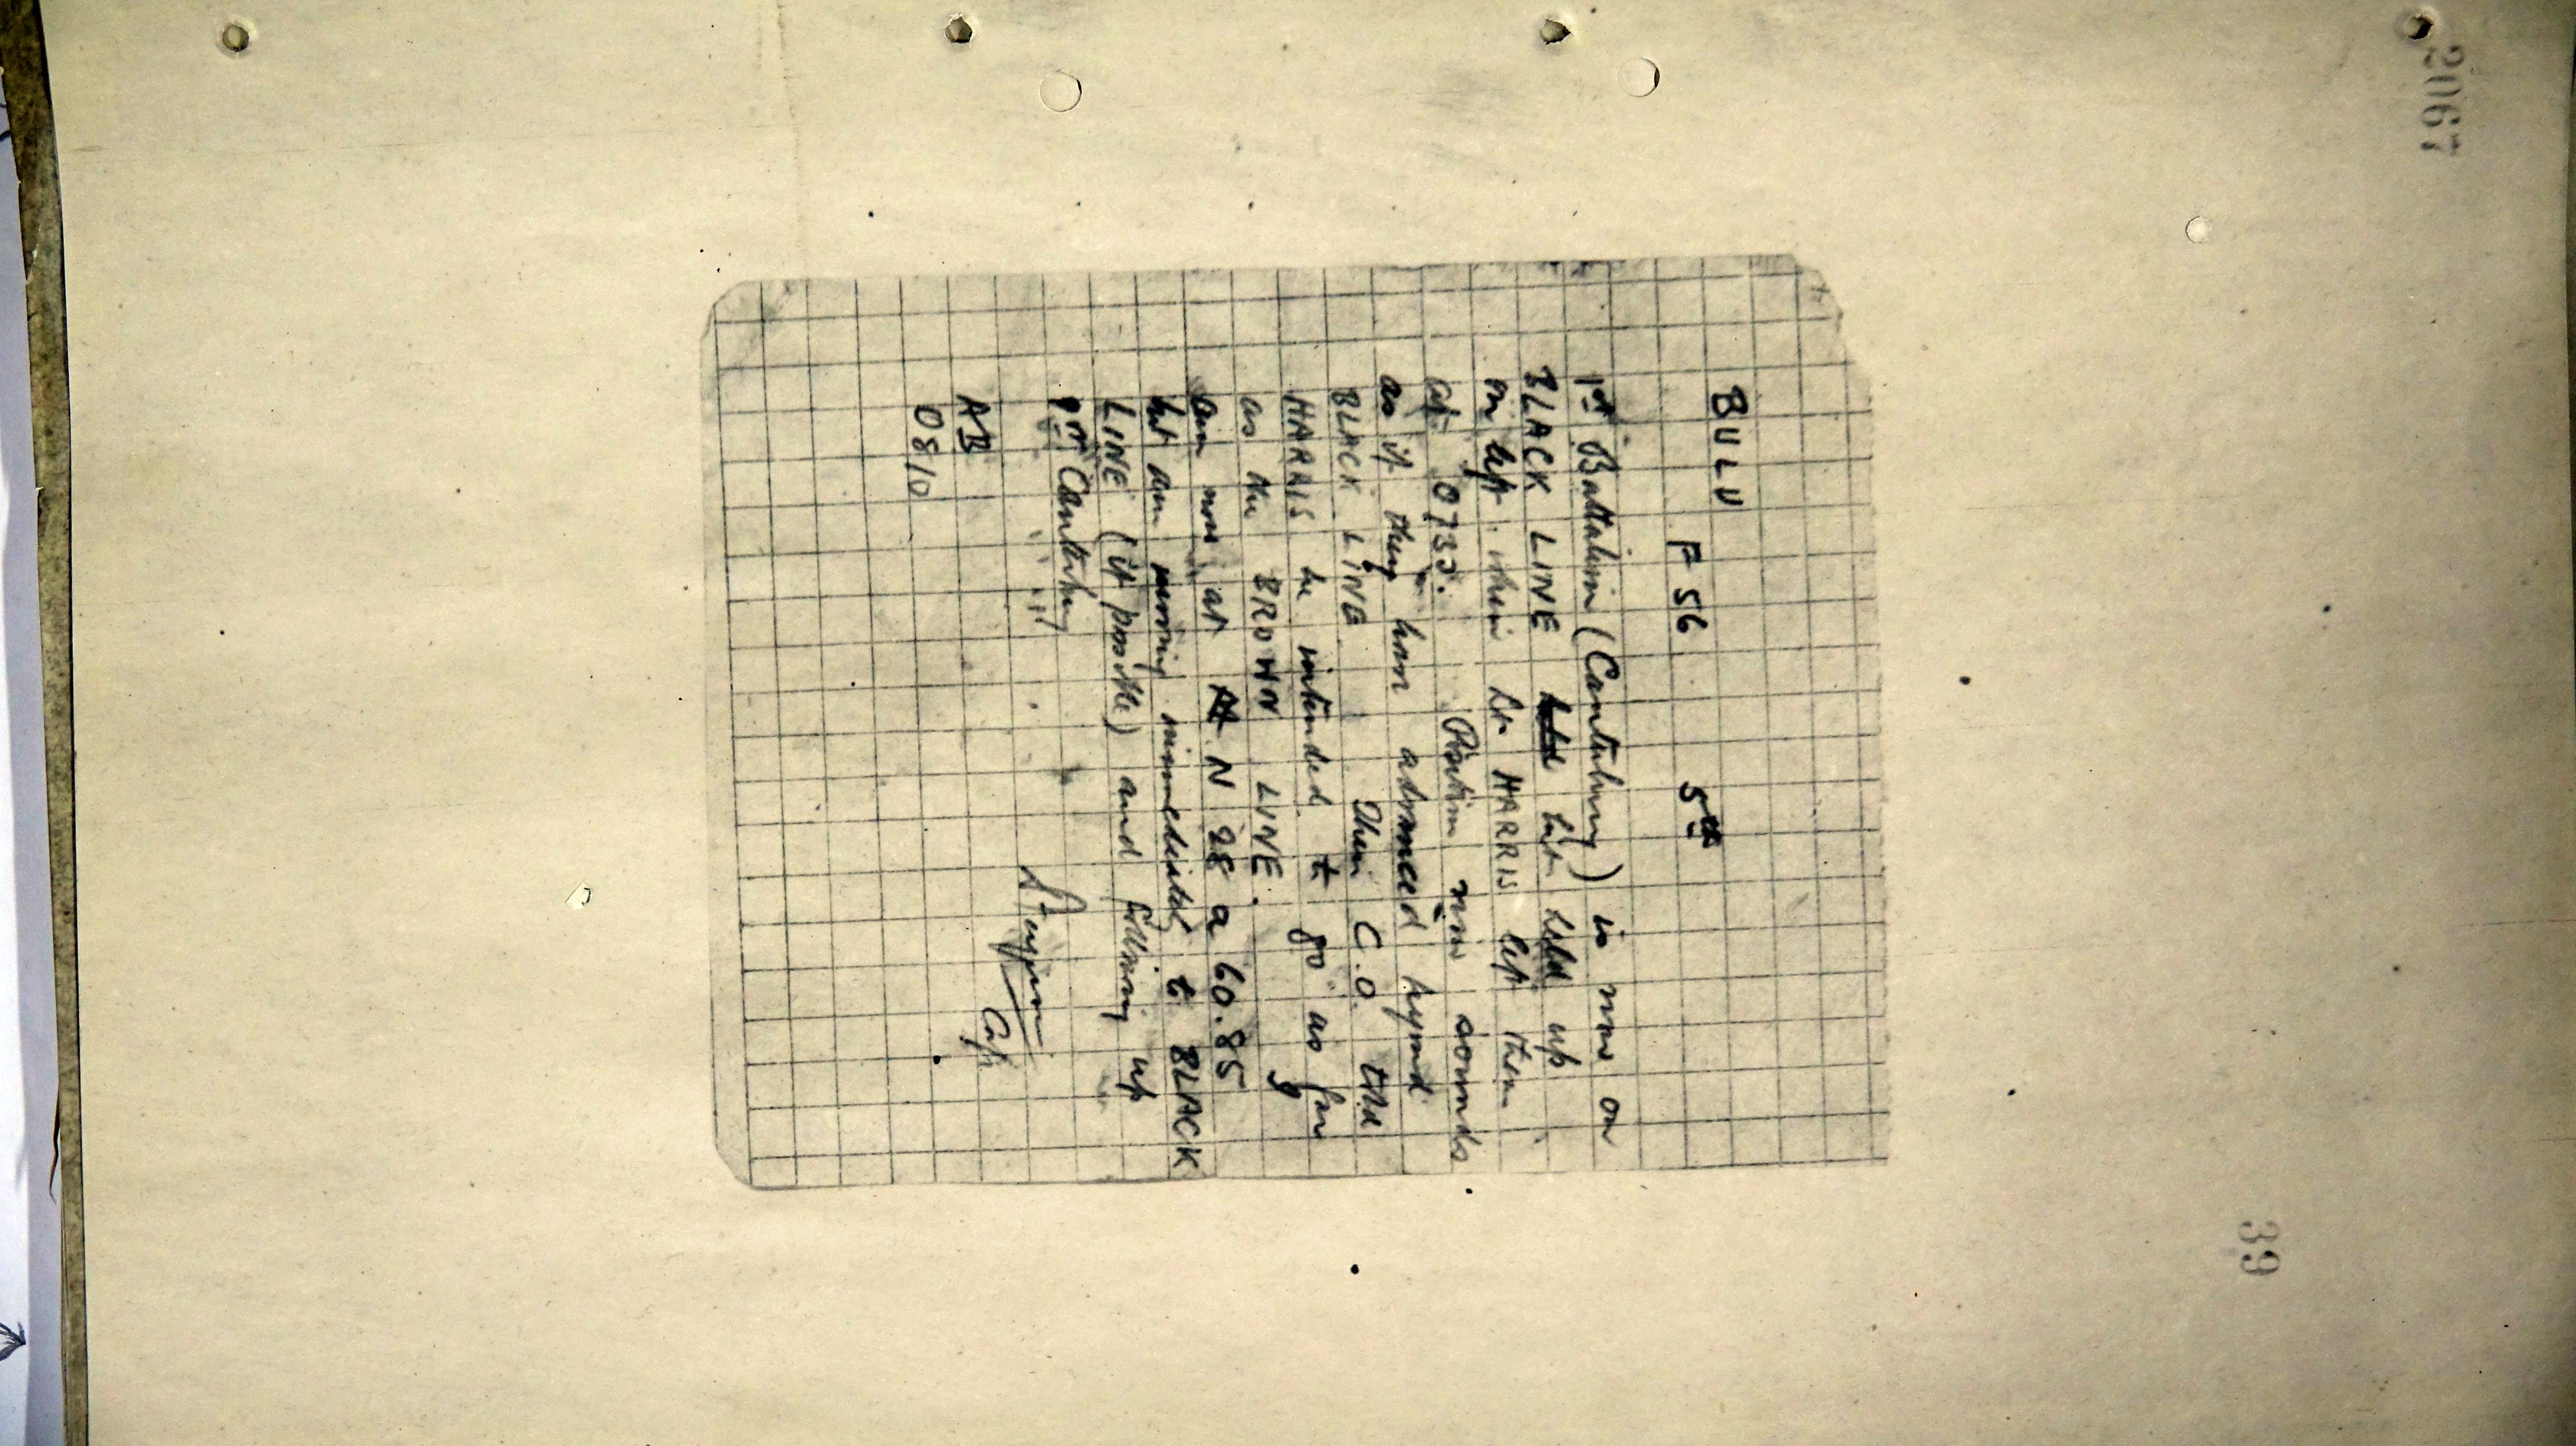 2067
39
BULU
F 56 5th
1st Battalion (Canterbury) is now on
BLACK LINE but held up
on left when Lt HARRIS left them
at 0733. Position now sounds
as if they have advanced beyond
BLACK LINE Their C.O. told
HARRIS he intended to go as far
as the BROWN LINE.
am now at N 28 a 60.85
but am moving immediately to BLACK
LINE (if possible) and following up
1st Canterbury
AB
0810
Capt